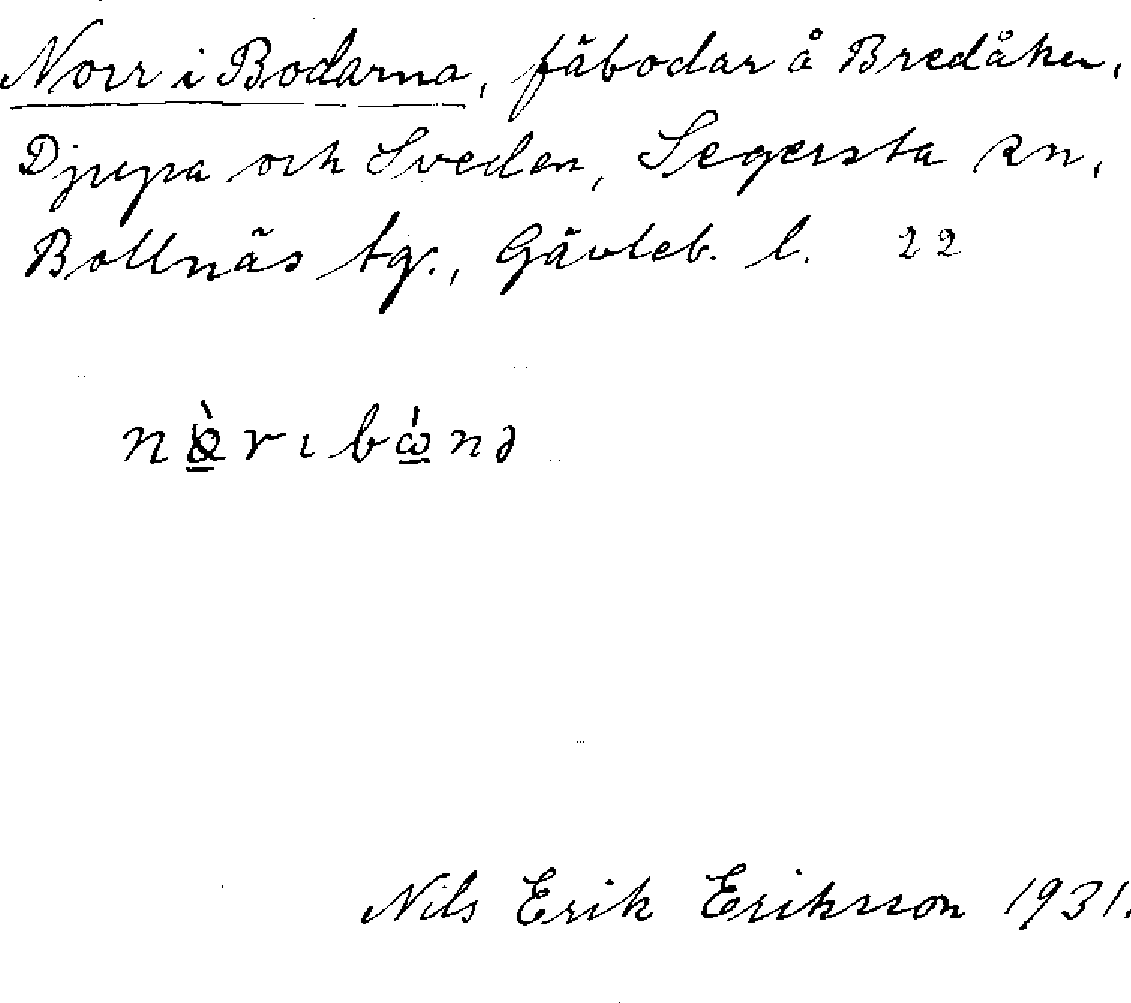 Norr i Bodarna, fäbodar å Bredåker,
Djupa och Sveden, Segersta sn,
Bollnäs tg., Gävleb. l. 22
Nils Erik Eriksson 1931.